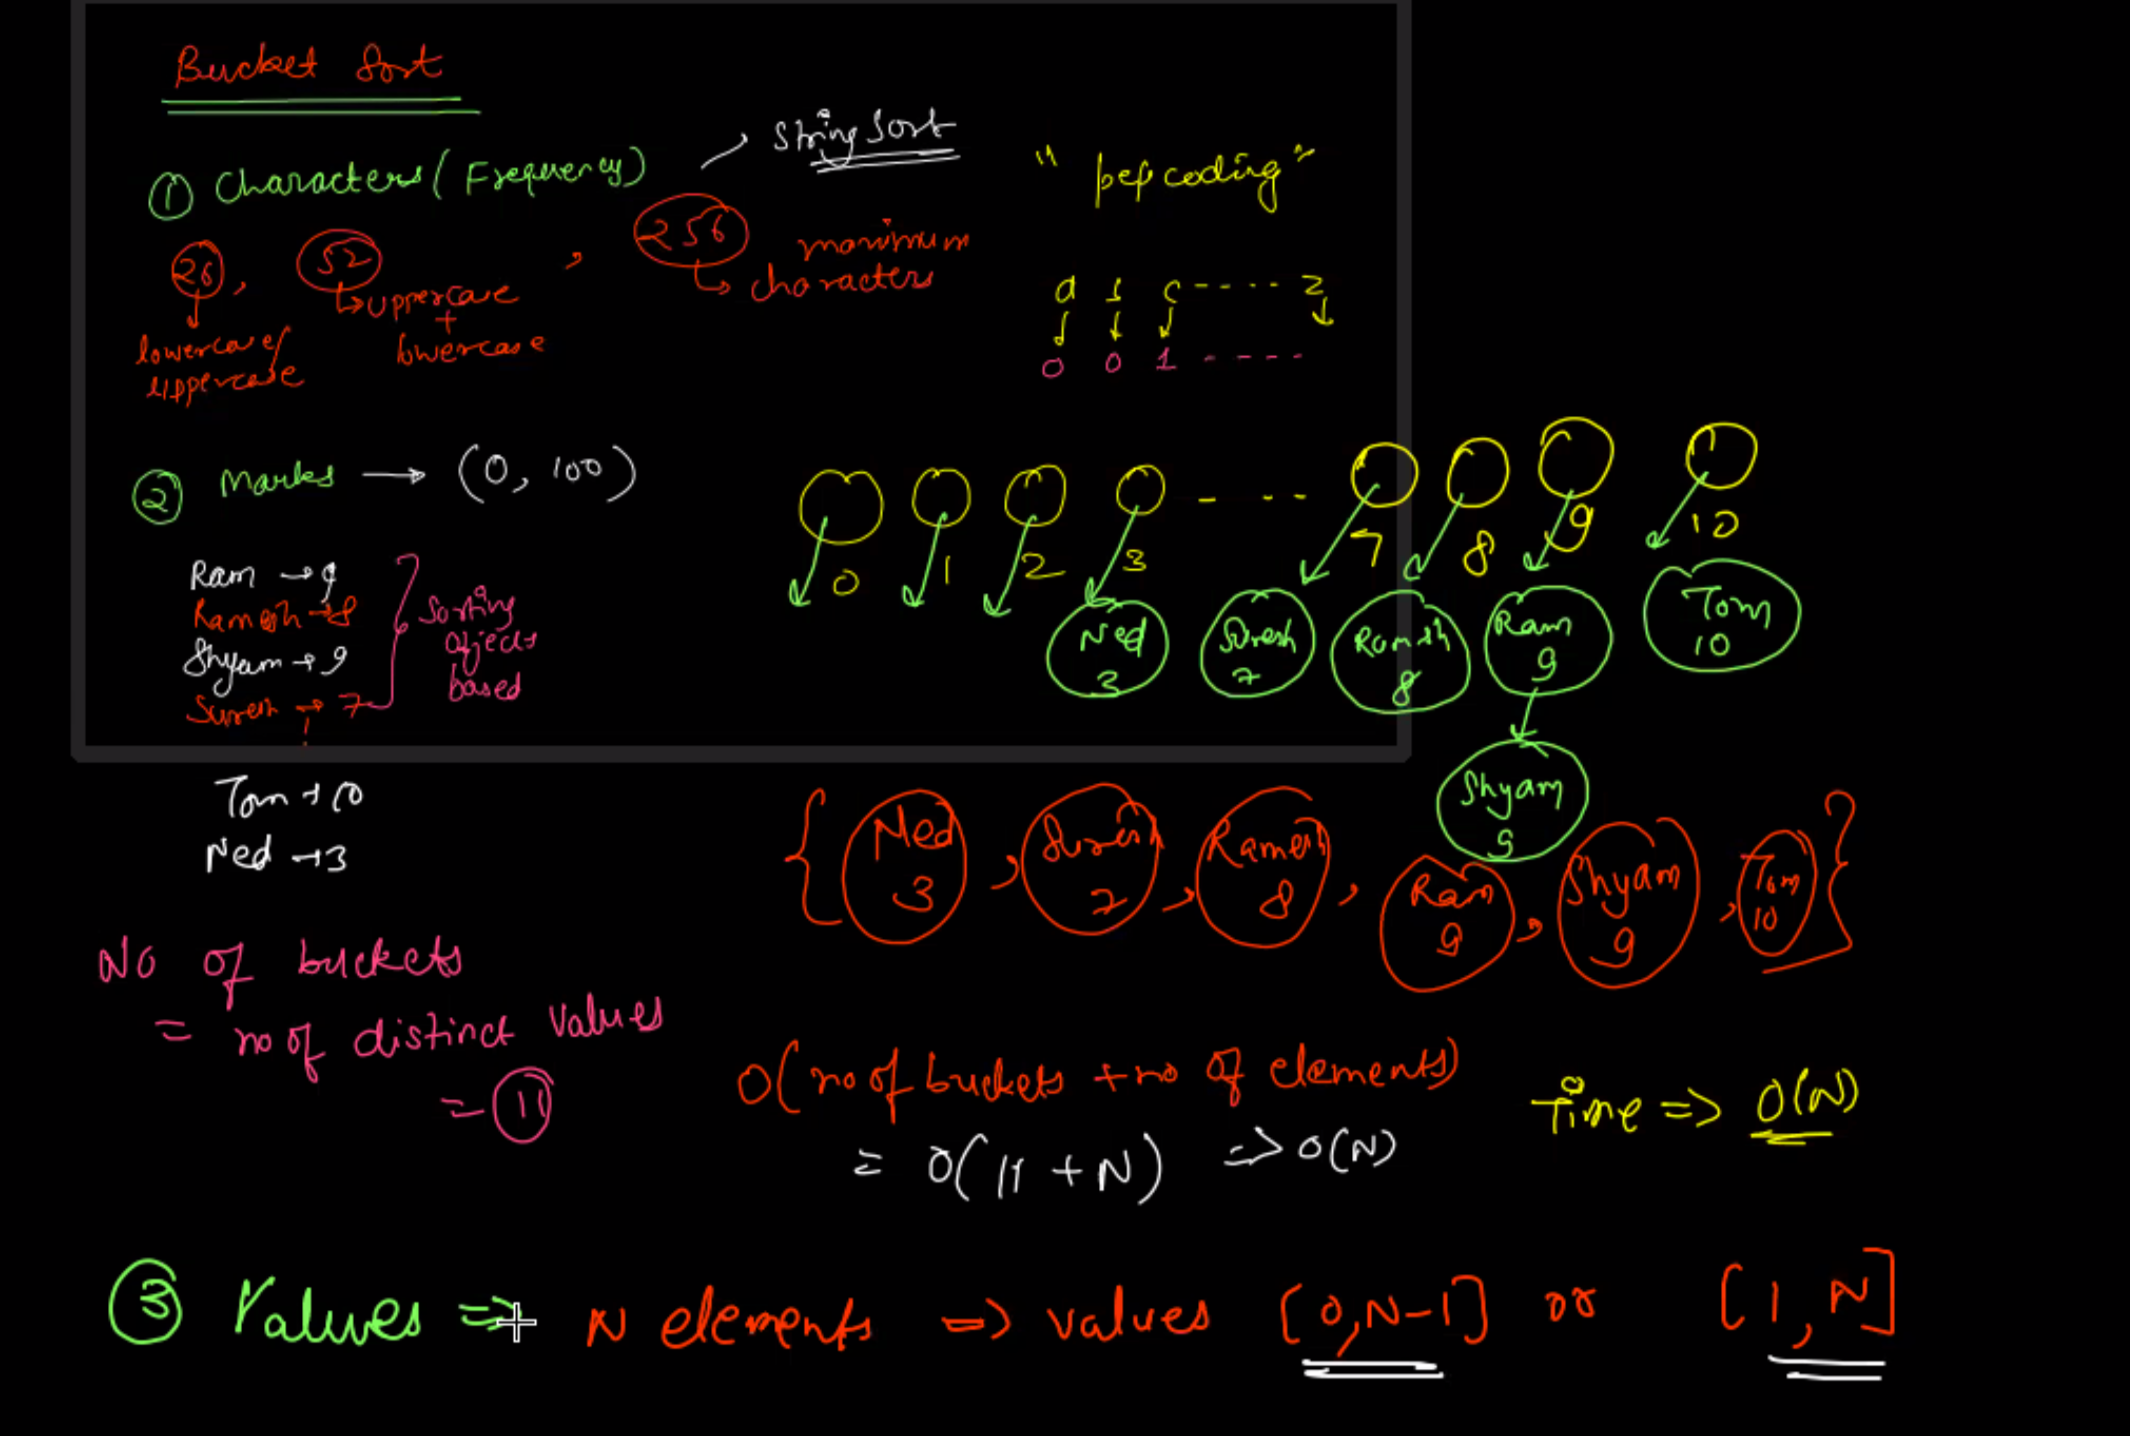 Bucket Sort
① Characters (Frequency) → String Sort
"pepcoding"
26, 52, 256
lowercase/uppercase
uppercase + lowercase
maximum characters
a b c ---- z
0 0 1 ----
② Marks → (0, 100)
Ram → 9
Ramesh → 8
Shyam → 9
Suresh → 7
Sorting
objects
based
Tom → 10
Ned → 3
0 1 2 3 - - - 7 8 9 10
Ned 3
Suresh 7
Ramesh 8
Ram 9
Tom 10
Shyam 9
{ Ned 3, Suresh 7, Ramesh 8, Ram 9, Shyam 9, Tom 10 }
No of buckets
= no of distinct values
= 11
O(no of buckets + no of elements)
= O(11 + N) => O(N)
Time => O(N)
③ Values => N elements => values [0, N-1] or [1, N]